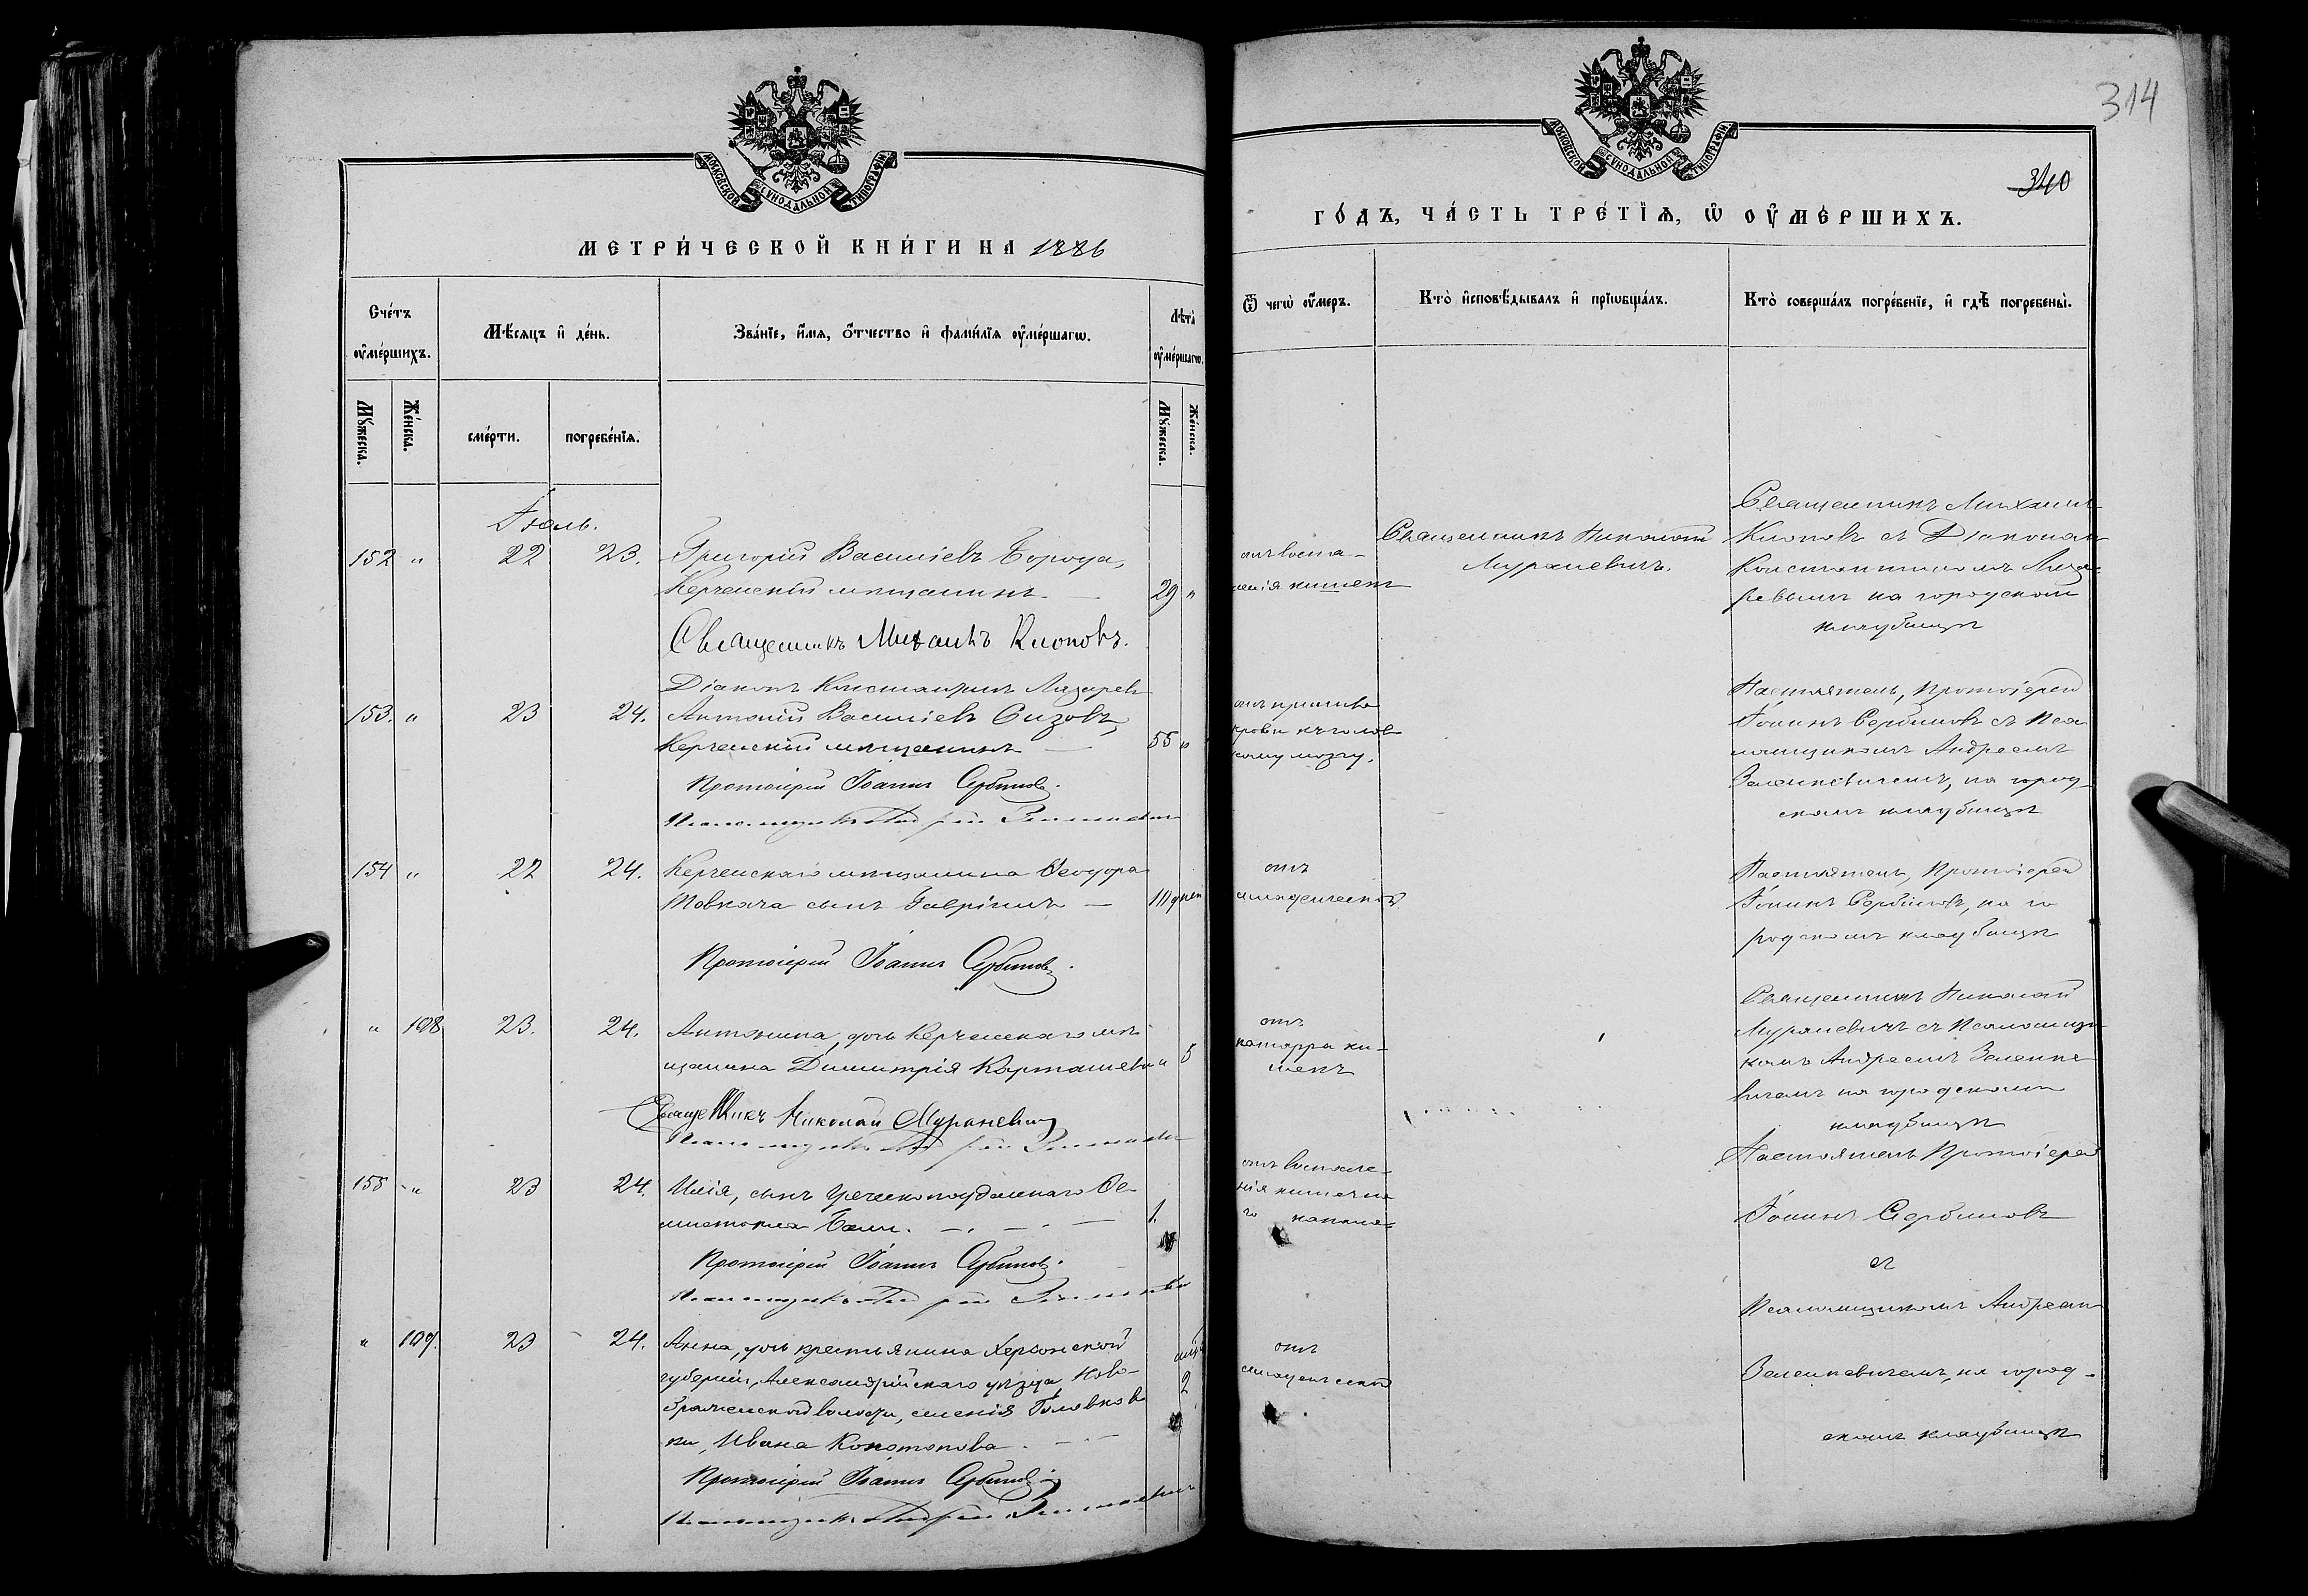 МОСКОВСКОЙ СѴНОДАЛЬНОЙ ТИПОГРАФІИ
МЕТРИ́ЧЕСКОЙ КНИ́ГИ НА 1886
Сче́тъ ᲂумéршихъ.
Мѣ́сяцъ и де́нь.
Зва́нїе, и́мя, ѻ҆́тчество и фами́лїя ᲂуме́ршагѡ.
Лѣта̀ ᲂуме́ршагѡ.
Мꙋ́жеска.
Же́нска.
сме́рти.
погребе́нїѧ.
Мꙋ́жеска.
Же́нска.
Іюль.
152 " 22 23. Григорій Василіевъ Борода,
Керченскій мѣщанинъ — 29 "
Священникъ Михаилъ Клоповъ.
Діаконъ Константинъ Лазарев
153. " 23 24. Антоній Василіевъ Сизовъ,
Керченскій мѣщанинъ — 55 "
Протоіерей Іоаннъ Сербиновъ.
Псаломщикъ Андрей Зеленкевич
154 " 22 24. Керченскаго мѣщанина Ѳеодора
Товкача сынъ Гавріилъ — 10 дней
Протоіерей Іоаннъ Сербиновъ.
" 108 23. 24. Антонина, дочь Керченскаго мѣ-
щанина Димитрія Карташева " 5
Священникъ Николай Мураневич
Псаломщикъ Андрей Зеленкевич
155 " 23 24. Илія, сынъ греческоподданнаго Ѳе-
мистокла — 1.
Протоіерей Іоаннъ Сербиновъ.
Псаломщикъ Андрей Зеленкевич
" 109. 23 24. Анна, дочь крестьянина Херсонской
губерніи, Александрійскаго уѣзда, Ново-
волости, селенія Головков
ки, Ивана Конотопова. — 2
Протоіерей Іоаннъ Сербиновъ
Псаломщикъ Андрей Зеленкевич
314
МОСКОВСКОЙ СѴНОДАЛЬНОЙ ТИПОГРАФІИ
340
ГО́ДЪ, ЧА́СТЬ ТРЕ́ТЇѦ, Ѽ ОУМЕ́РШИХЪ.
Ѿ чегѡ̀ ᲂу́меръ.
Кто̀ и҆сповѣ́дывалъ и҆ прїѡбща́лъ.
Кто̀ соверша́лъ погребе́нїе, и҆ гдѣ̀ погребены̀.
отъ воспа-
ленія кишекъ
Священникъ Николай
Мураневичъ.
Священникъ Михаилъ
Клоповъ съ Діаконом
Константиномъ Лаза-
ревымъ на городскомъ
кладбищѣ
отъ прилива
крови къ голов
ному мозгу.
Настоятель, Протоіерей
Іоаннъ Сербиновъ съ Пса
ломщикомъ Андреемъ
Зеленкевичемъ, на город-
скомъ кладбищѣ
отъ
младенческой
Настоятель, Протоіерей
Іоаннъ Сербиновъ, на го
родскомъ кладбищѣ
отъ
катарра ки-
шекъ
Священникъ Николай
Мураневичъ съ Псаломщи
комъ Андреемъ Зеленке
вичемъ на городскомъ
кладбищѣ
отъ воспале-
нія кишечна
го канала
Настоятель Протоіерей
Іоаннъ Сербиновъ
съ
Псаломщикомъ Андреем
Зеленкевичемъ, на город-
скомъ кладбищѣ
отъ
младенческой